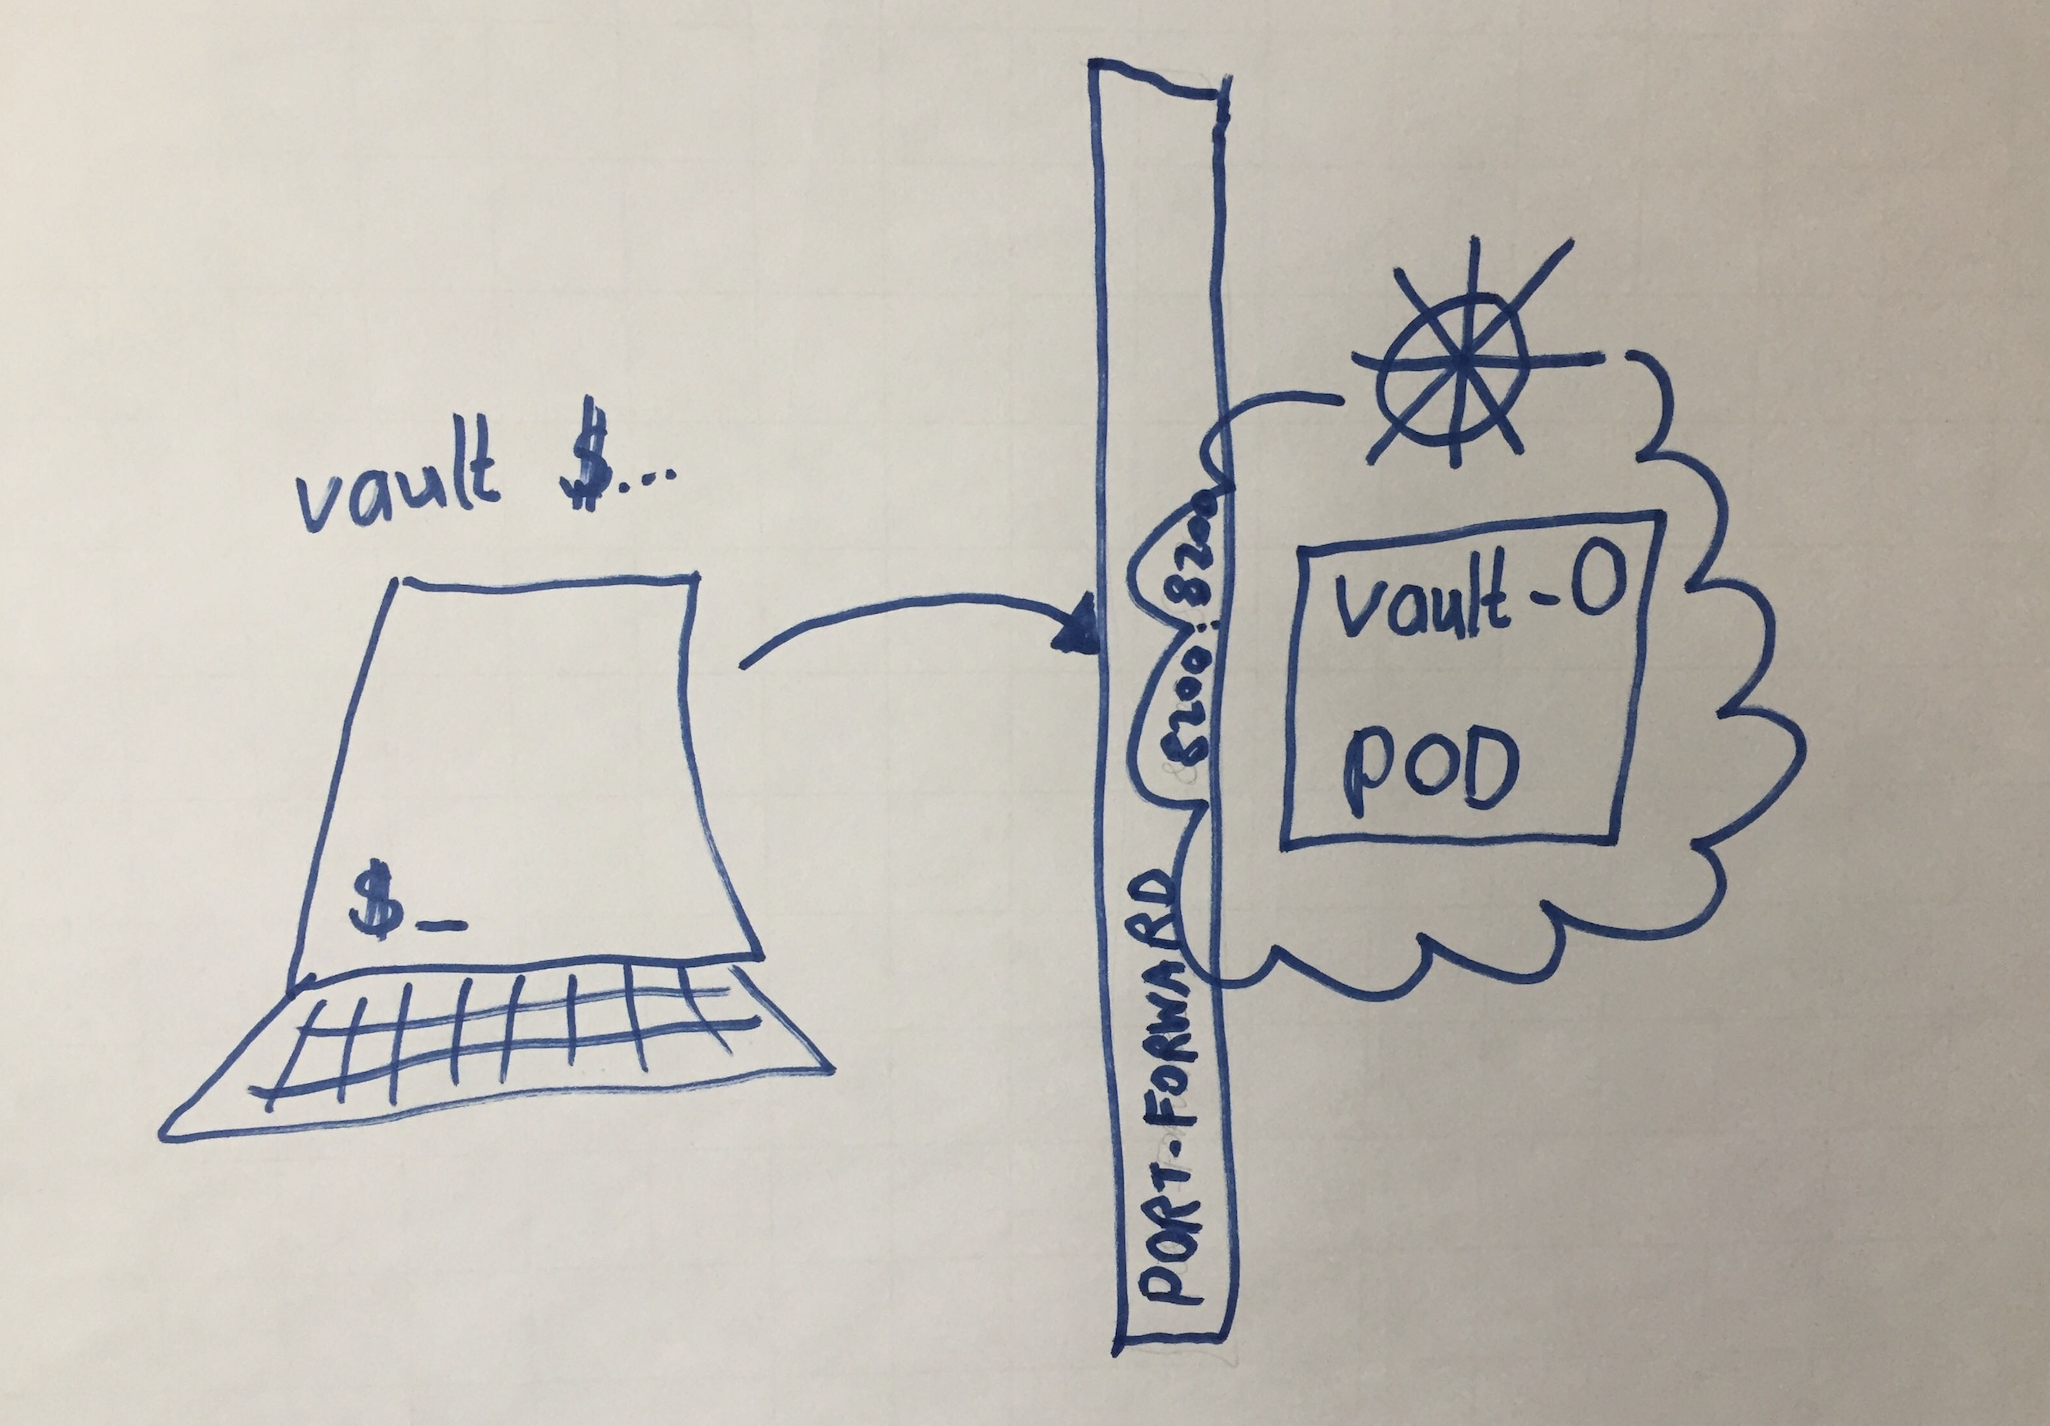 vault $...
$_
PORT-FORWARD 8200:8200
vault-0
POD